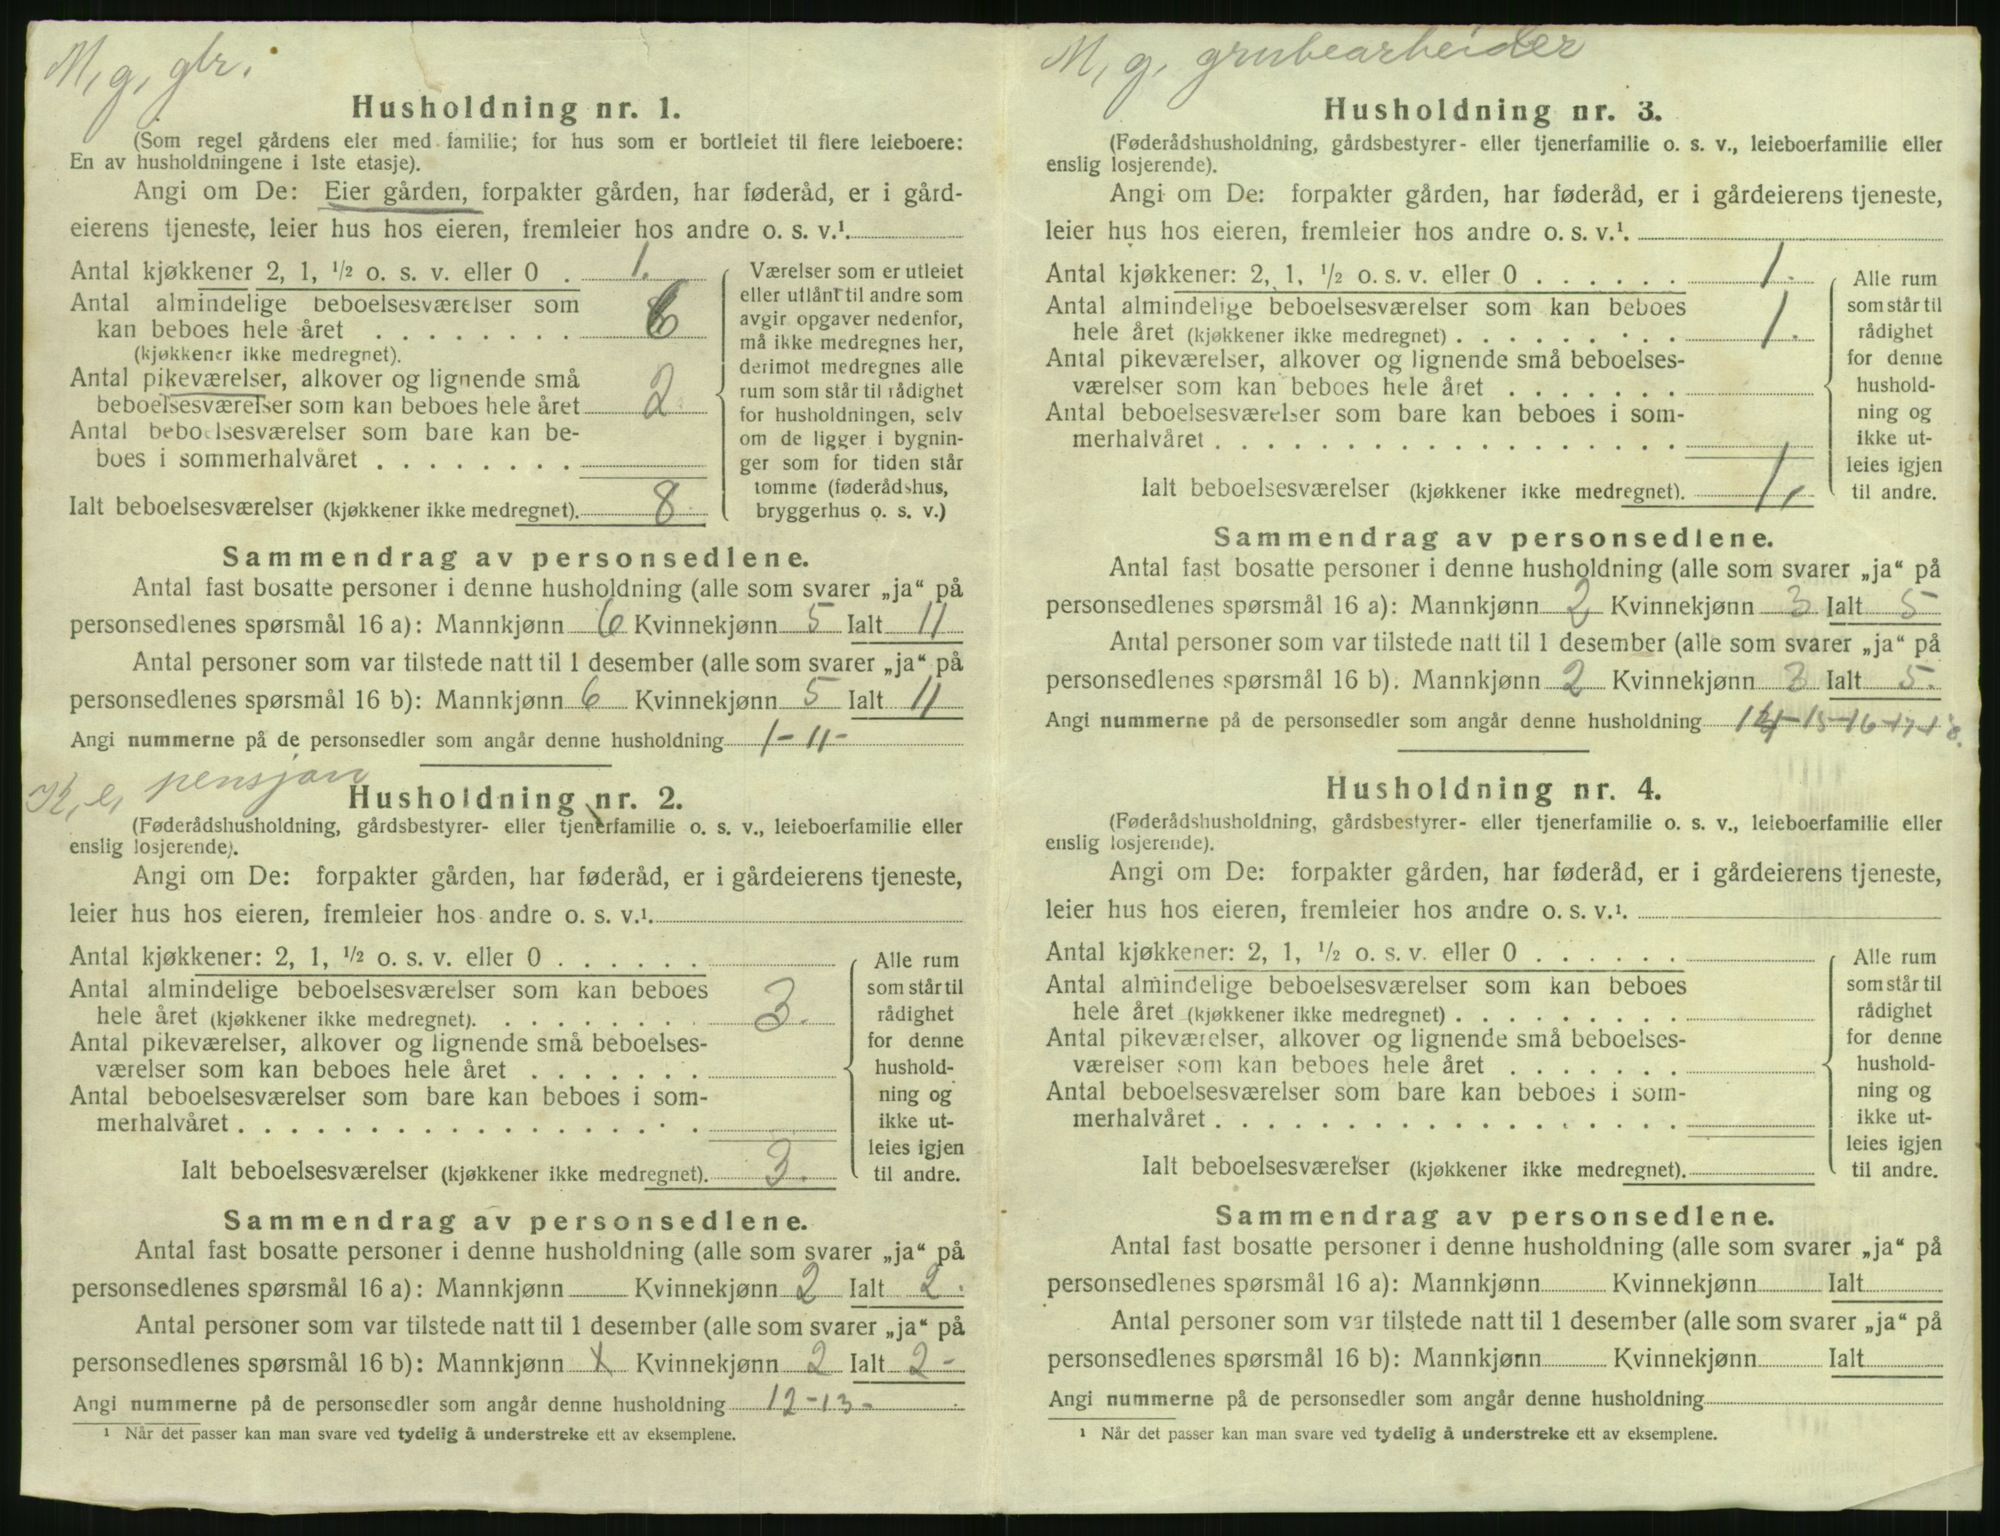 M, g, gbr.
Husholdning nr. 1.
(Som regel gårdens eier med familie; for hus som er bortleiet til flere leieboere:
En av husholdningene i 1ste etasje).
Angi om De: Eier gården, forpakter gården, har føderåd, er i gård-
eierens tjeneste, leier hus hos eieren, fremleier hos andre o. s. v.¹.
Antal kjøkkener 2, 1, ½ o. s. v. eller 0 . 1.
Antal almindelige beboelsesværelser som
kan beboes hele året . . . . . . . . 6
(kjøkkener ikke medregnet).
Antal pikeværelser, alkover og lignende små
beboelsesværelser som kan beboes hele året 2
Antal beboelsesværelser som bare kan be-
boes i sommerhalvåret . . . . . . . .
Ialt beboelsesværelser (kjøkkener ikke medregnet). 8
Værelser som er utleiet
eller utlånt til andre som
avgir opgaver nedenfor,
må ikke medregnes her,
derimot medregnes alle
rum som står til rådighet
for husholdningen, selv
om de ligger i bygnin-
ger som for tiden står
tomme (føderådshus,
bryggerhus o. s. v.)
Sammendrag av personsedlene.
Antal fast bosatte personer i denne husholdning (alle som svarer „ja“ på
personsedlenes spørsmål 16 a): Mannkjønn 6 Kvinnekjønn 5 Ialt 11
Antal personer som var tilstede natt til 1 desember (alle som svarer „ja“ på
personsedlenes spørsmål 16 b): Mannkjønn 6 Kvinnekjønn 5 Ialt 11
Angi nummerne på de personsedler som angår denne husholdning 1-11-
K, e, pensjon
Husholdning nr. 2.
(Føderådshusholdning, gårdsbestyrer- eller tjenerfamilie o. s. v., leieboerfamilie eller
enslig losjerende).
Angi om De: forpakter gården, har føderåd, er i gårdeierens tjeneste,
leier hus hos eieren, fremleier hos andre o. s. v.¹.
Antal kjøkkener: 2, 1, ½ o. s. v. eller 0 . . . . . .
Antal almindelige beboelsesværelser som kan beboes
hele året (kjøkkener ikke medregnet). . . . . . . . . 3.
Antal pikeværelser, alkover og lignende små beboelses-
værelser som kan beboes hele året . . . . . . .
Antal beboelsesværelser som bare kan beboes i som-
merhalvåret . . . . . . . . . . . . . . . . . .
Ialt beboelsesværelser (kjøkkener ikke medregnet). 3.
Alle rum
som står til
rådighet
for denne
hushold-
ning og
ikke ut-
leies igjen
til andre.
Sammendrag av personsedlene.
Antal fast bosatte personer i denne husholdning (alle som svarer „ja“ på
personsedlenes spørsmål 16 a): Mannkjønn Kvinnekjønn 2 Ialt 2.
Antal personer som var tilstede natt til 1 desember (alle som svarer „ja“ på
personsedlenes spørsmål 16 b): Mannkjønn x Kvinnekjønn 2 Ialt 2-
Angi nummerne på de personsedler som angår denne husholdning 12-13-
¹ Når det passer kan man svare ved tydelig å understreke ett av eksemplene.
M, g, grubearbeider
Husholdning nr. 3.
(Føderådshusholdning, gårdsbestyrer- eller tjenerfamilie o. s. v., leieboerfamilie eller
enslig losjerende).
Angi om De: forpakter gården, har føderåd, er i gårdeierens tjeneste,
leier hus hos eieren, fremleier hos andre o. s. v.¹.
Antal kjøkkener: 2, 1, ½ o. s. v. eller 0 . . . . . . 1.
Antal almindelige beboelsesværelser som kan beboes
hele året (kjøkkener ikke medregnet) . . . . . . . . . 1.
Antal pikeværelser, alkover og lignende små beboelses-
værelser som kan beboes hele året . . . . . . .
Antal beboelsesværelser som bare kan beboes i som-
merhalvåret . . . . . . . . . . . . . . . . . .
Ialt beboelsesværelser (kjøkkener ikke medregnet). 1,
Alle rum
som står til
rådighet
for denne
hushold-
ning og
ikke ut-
leies igjen
til andre.
Sammendrag av personsedlene.
Antal fast bosatte personer i denne husholdning (alle som svarer „ja“ på
personsedlenes spørsmål 16 a): Mannkjønn 2 Kvinnekjønn 3 Ialt 5
Antal personer som var tilstede natt til 1 desember (alle som svarer „ja“ på
personsedlenes spørsmål 16 b). Mannkjønn 2 Kvinnekjønn 3 Ialt 5.
Angi nummerne på de personsedler som angår denne husholdning 14-15-16-17-18.
Husholdning nr. 4.
(Føderådshusholdning, gårdsbestyrer- eller tjenerfamilie o. s. v., leieboerfamilie eller
enslig losjerende).
Angi om De: forpakter gården, har føderåd, er i gårdeierens tjeneste,
leier hus hos eieren, fremleier hos andre o. s. v.¹.
Antal kjøkkener: 2, 1, ½ o. s. v. eller 0 . . . . . .
Antal almindelige beboelsesværelser som kan beboes
hele året (kjøkkener ikke medregnet) . . . . . . . . .
Antal pikeværelser, alkover og lignende små beboelses-
værelser som kan beboes hele året . . . . . . .
Antal beboelsesværelser som bare kan beboes i som-
merhalvåret . . . . . . . . . . . . . . . . . .
Ialt beboelsesværelser (kjøkkener ikke medregnet).
Alle rum
som står til
rådighet
for denne
hushold-
ning og
ikke ut-
leies igjen
til andre.
Sammendrag av personsedlene.
Antal fast bosatte personer i denne husholdning (alle som svarer „ja“ på
personsedlenes spørsmål 16 a): Mannkjønn Kvinnekjønn Ialt
Antal personer som var tilstede natt til 1 desember (alle som svarer „ja“ på
personsedlenes spørsmål 16 b): Mannkjønn Kvinnekjønn Ialt
Angi nummerne på de personsedler som angår denne husholdning
¹ Når det passer kan man svare ved tydelig å understreke ett av eksemplene.